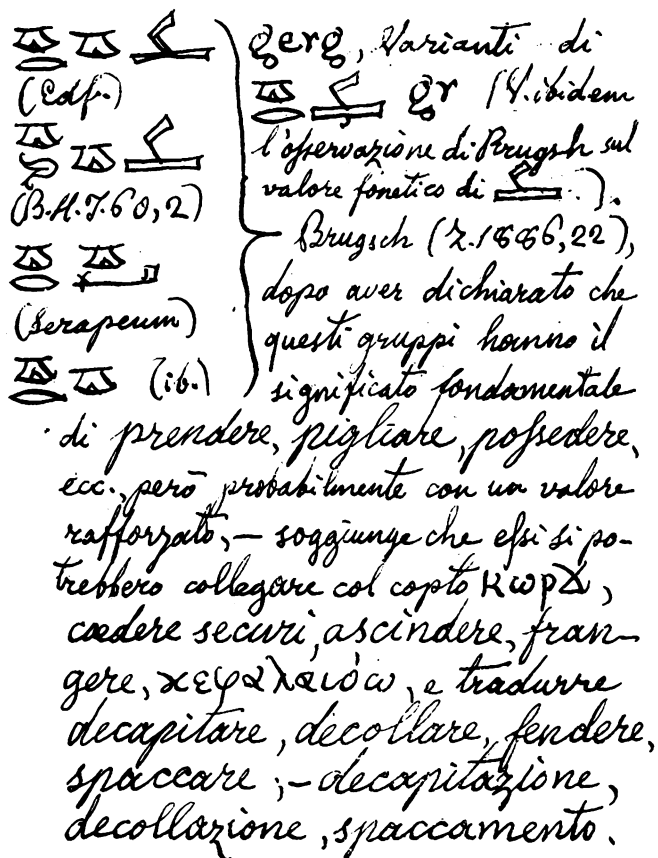 (Edf.)
(B.H.J.60,2)
(Serapeum)
(ib.)
gerg, Varianti di
gr (V. ibidem
l'oſservazione di Brugsch sul
valore fonetico di ).
Brugsch (Z.1886,22),
dopo aver dichiarato che
questi gruppi hanno il
significato fondamentale
di prendere, pigliare, poſsedere,
ecc., però probabilmente con un valore
rafforzato, – soggiunge che eſsi si po-
trebbero collegare col copto ⲕⲱⲣϫ,
cædere securi, ascindere, fran-
gere, κεφαλαιόω, e tradurre
decapitare, decollare, fendere,
spaccare ; – decapitazione,
decollazione, spaccamento.